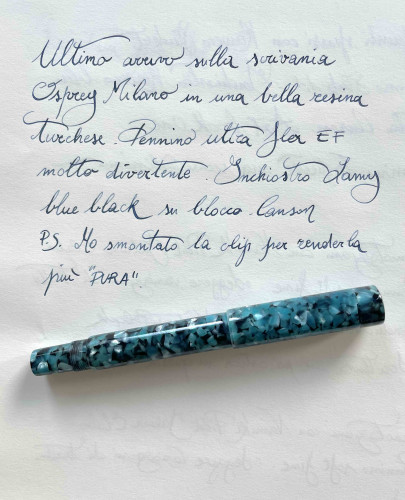 Ultimo arrivo sulla scrivania
Osprey Milano in una bella resina
turchese. Pennino ultra flex EF
molto divertente. Inchiostro Lamy
blue black su blocco Canson
P.S. Ho smontato la clip per renderla
più "PURA".